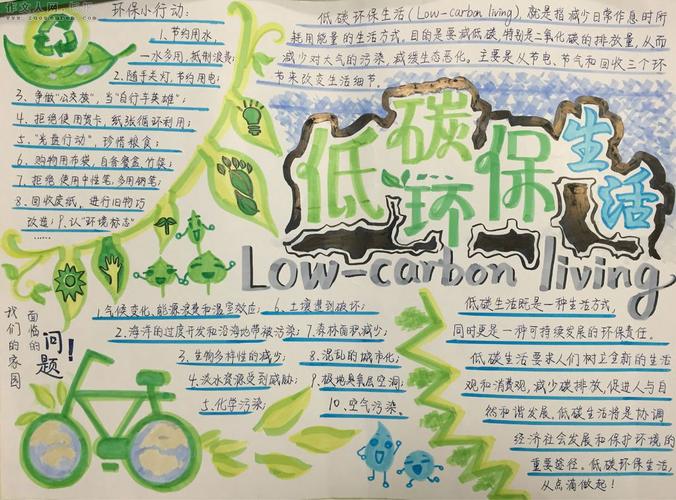 作文人网
环保小行动:
1.节约用水
一水多用,抵制浪费;
2.随手走灯,节约用电;
3、争做"公交族",当"自行车英雄";
4.拒绝使用贺卡,纸张循环利用;
5、"光盘行动",珍惜粮食;
6.购物用布袋,自备餐盒、竹筷;
7.拒绝使用中性笔,多用钢笔;
8.回收废纸,进行旧物巧
改造;9、认"环境标志"
低碳环保生活(Low-carbon living),就是指减少日常作息时所
耗用能量的生活方式,目的是要减低碳,特别是二氧化碳的排放量,从而
减少对大气的污染,减缓生态恶化。主要是从节电、节气和回收三个环
节来改变生活细节.
低碳环保生活
Low-carbon living
我们的家园
面临的
问题!
1.气候变化、能源浪费和温室效应;
2.海洋的过度开发和沿海地带被污染;
3、生物多样性的减少;
4.淡水资源受到威胁;
5、化学污染;
6.土壤遭到破坏;
7.森林面积减少;
8.混乱的城市化;
9.极地臭氧层空洞;
10、空气污染。
低碳生活既是一种生活方式,
同时更是一种可持续发展的环保责任。
低碳生活要求人们树立全新的生活
观和消费观,减少碳排放,促进人与自
然和谐发展、低碳生活将是协调
经济社会发展和保护环境的
重要途径。低碳环保生活,
从点滴做起!